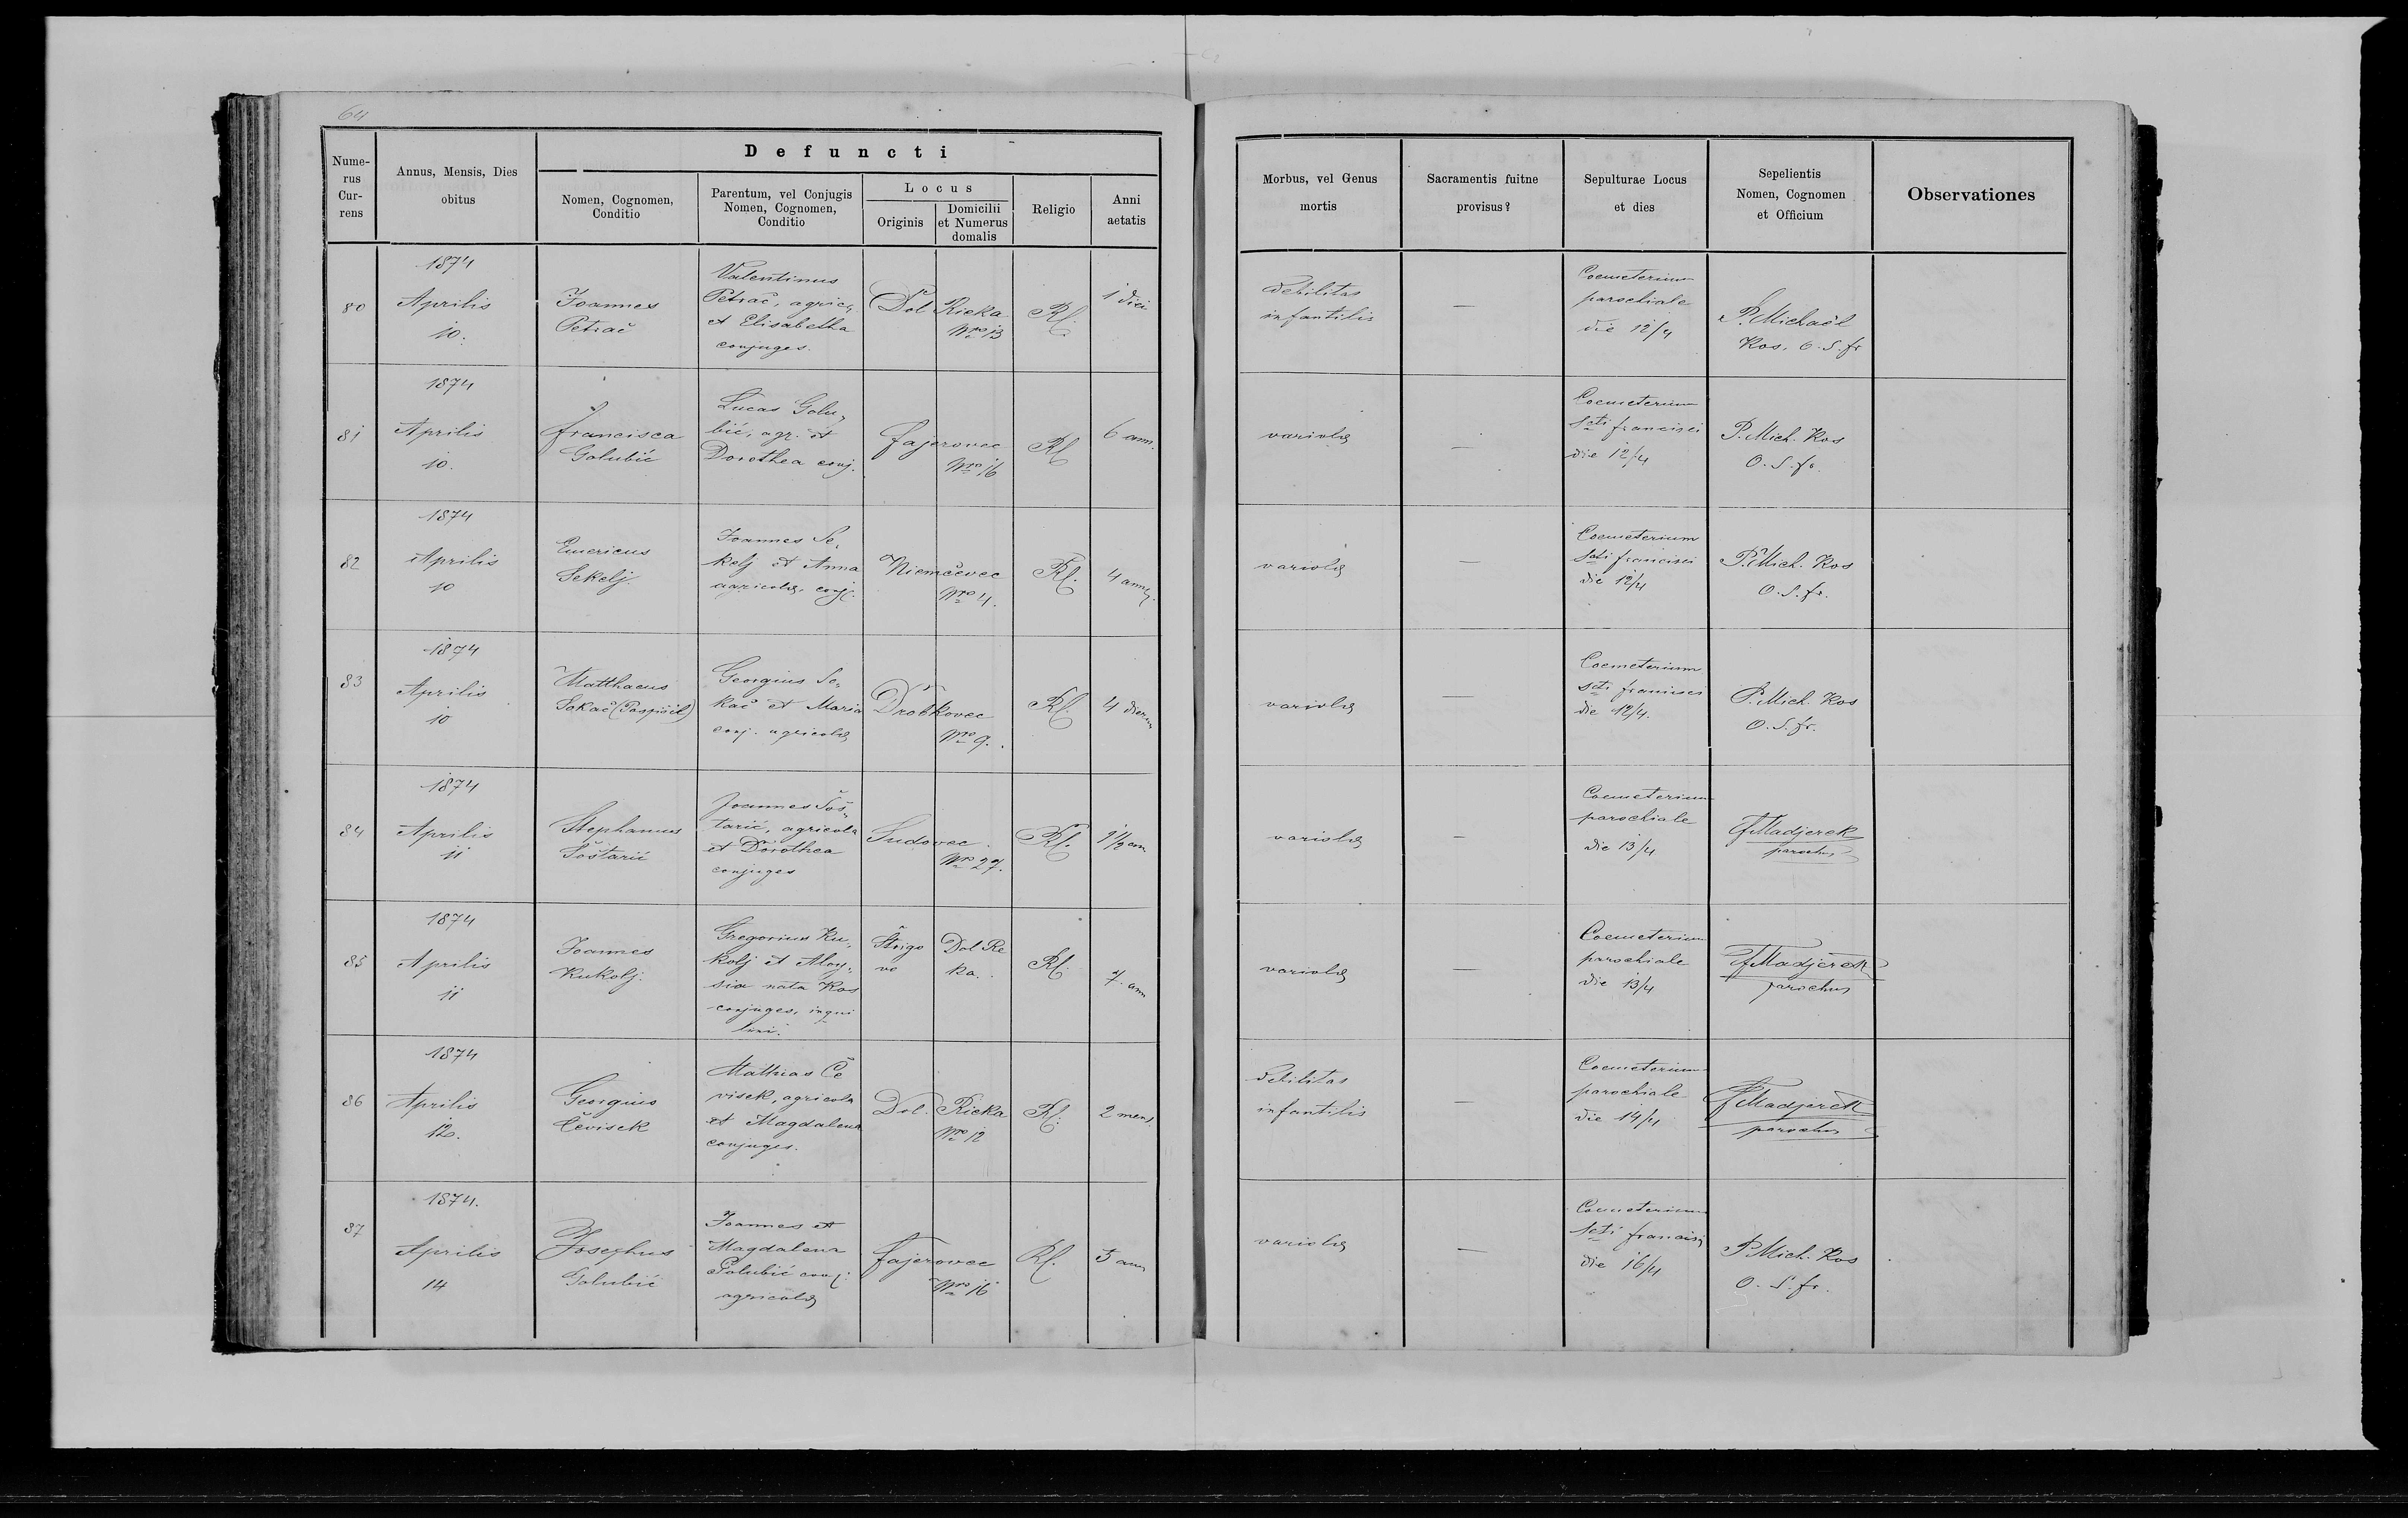 64
Defuncti
Nume-
rus
Cur-
rens
Annus, Mensis, Dies
obitus
Nomen, Cognomen,
Conditio
Parentum, vel Conjugis
Nomen, Cognomen,
Conditio
Locus
Originis
Domicilii
et Numerus
domalis
Religio
Anni
aetatis
Morbus, vel Genus
mortis
Sacramentis fuitne
provisus?
Sepulturae Locus
et dies
Sepelientis
Nomen, Cognomen
et Officium
Observationes
80
1874
Aprilis
10.
Joannes
Petrač
Valentinus
Petrač, agric.
et Elisabetha
conjuges.
Dol Rieka
Nro 13
Rl.
1 diei
Debilitas
infantilis
—
Coemeterium
parochiale
die 12/4
P. Michaël
Kos, O. S. fr
81
1874
Aprilis
10.
Francisca
Golubić
Lucas Golu„
bić, agr. et
Dorothea conj.
Fajerovec
Nro 16
Rl
6 ann.
variolæ
—
Coemeterium
Scti francisci
die 12/4
P. Mich. Kos
O. S. fr.
82
1874
Aprilis
10
Emericus
Sekelj
Joannes Se„
kelj et Anna
agricolæ, conj.
Niemčevec
Nro 4.
Rl.
4 ann
variolæ
—
Coemeterium
Scti francisci
die 12/4
P. Mich. Kos
O. S. fr.
83
1874
Aprilis
10
Matthaeus
Sokač (Pospišil)
Georgius So„
kač et Maria
conj. agricolæ
Drobkovec
Nro 9.
Rl.
4 dierum
variolæ
—
Coemeterium
Scti francisci
die 12/4.
P. Mich. Kos
O. S. fr.
84
1874
Aprilis
11
Stephanus
Šoštarić
Joannes Šoš„
tarić, agricola
et Dorothea
conjuges
Sudovec
Nro 27.
Rl.
1 1/2 ann
variolæ
—
Coemeterium
parochiale
die 13/4
F Madjerek
parochus
85
1874
Aprilis
11
Joannes
Kukolj.
Gregorius Ku„
kolj et Aloy„
sia nata Kos
conjuges, inqui
lini.
Štrigo
vo
Dol Re
ka.
Rl.
7. ann
variolæ
—
Coemeterium
parochiale
die 13/4
F Madjerek
parochus
86
1874
Aprilis
12.
Georgius
Čevisek
Mathias Če
visek, agricola
et Magdalena
conjuges.
Dol. Rieka
Nro 12
Rl.
2 mens.
Debilitas
infantilis
—
Coemeterium
parochiale
die 14/4
F Madjerek
parochus
87
1874.
Aprilis
14
Josephus
Golubić
Joannes et
Magdalena
Golubić conj.
agricolæ
Fajerovec
Nro 16
Rl.
5 ann
variolæ
—
Coemeterium
Scti francisci
die 16/4
P Mich. Kos
O. S. fr.